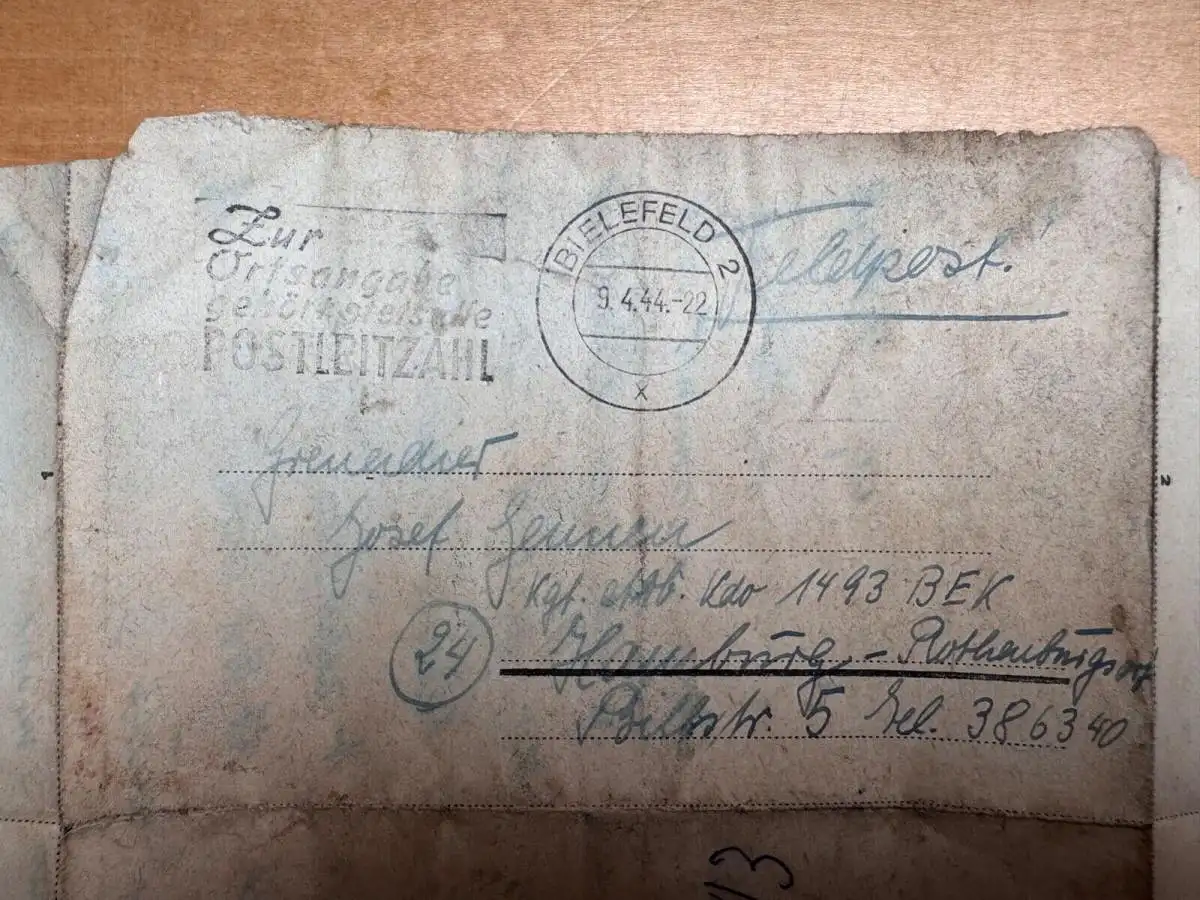 Zur
Ortsangabe
gehört die
POSTLEITZAHL
BIELEFELD 2
9.4.44.-22
x
Feldpost!
1
Grenadier
2
Josef
Kgf. Arb. Kdo 1493 BEK
24
Hamburg - Rothenburgsort
Billstr. 5 Tel. 386340
13